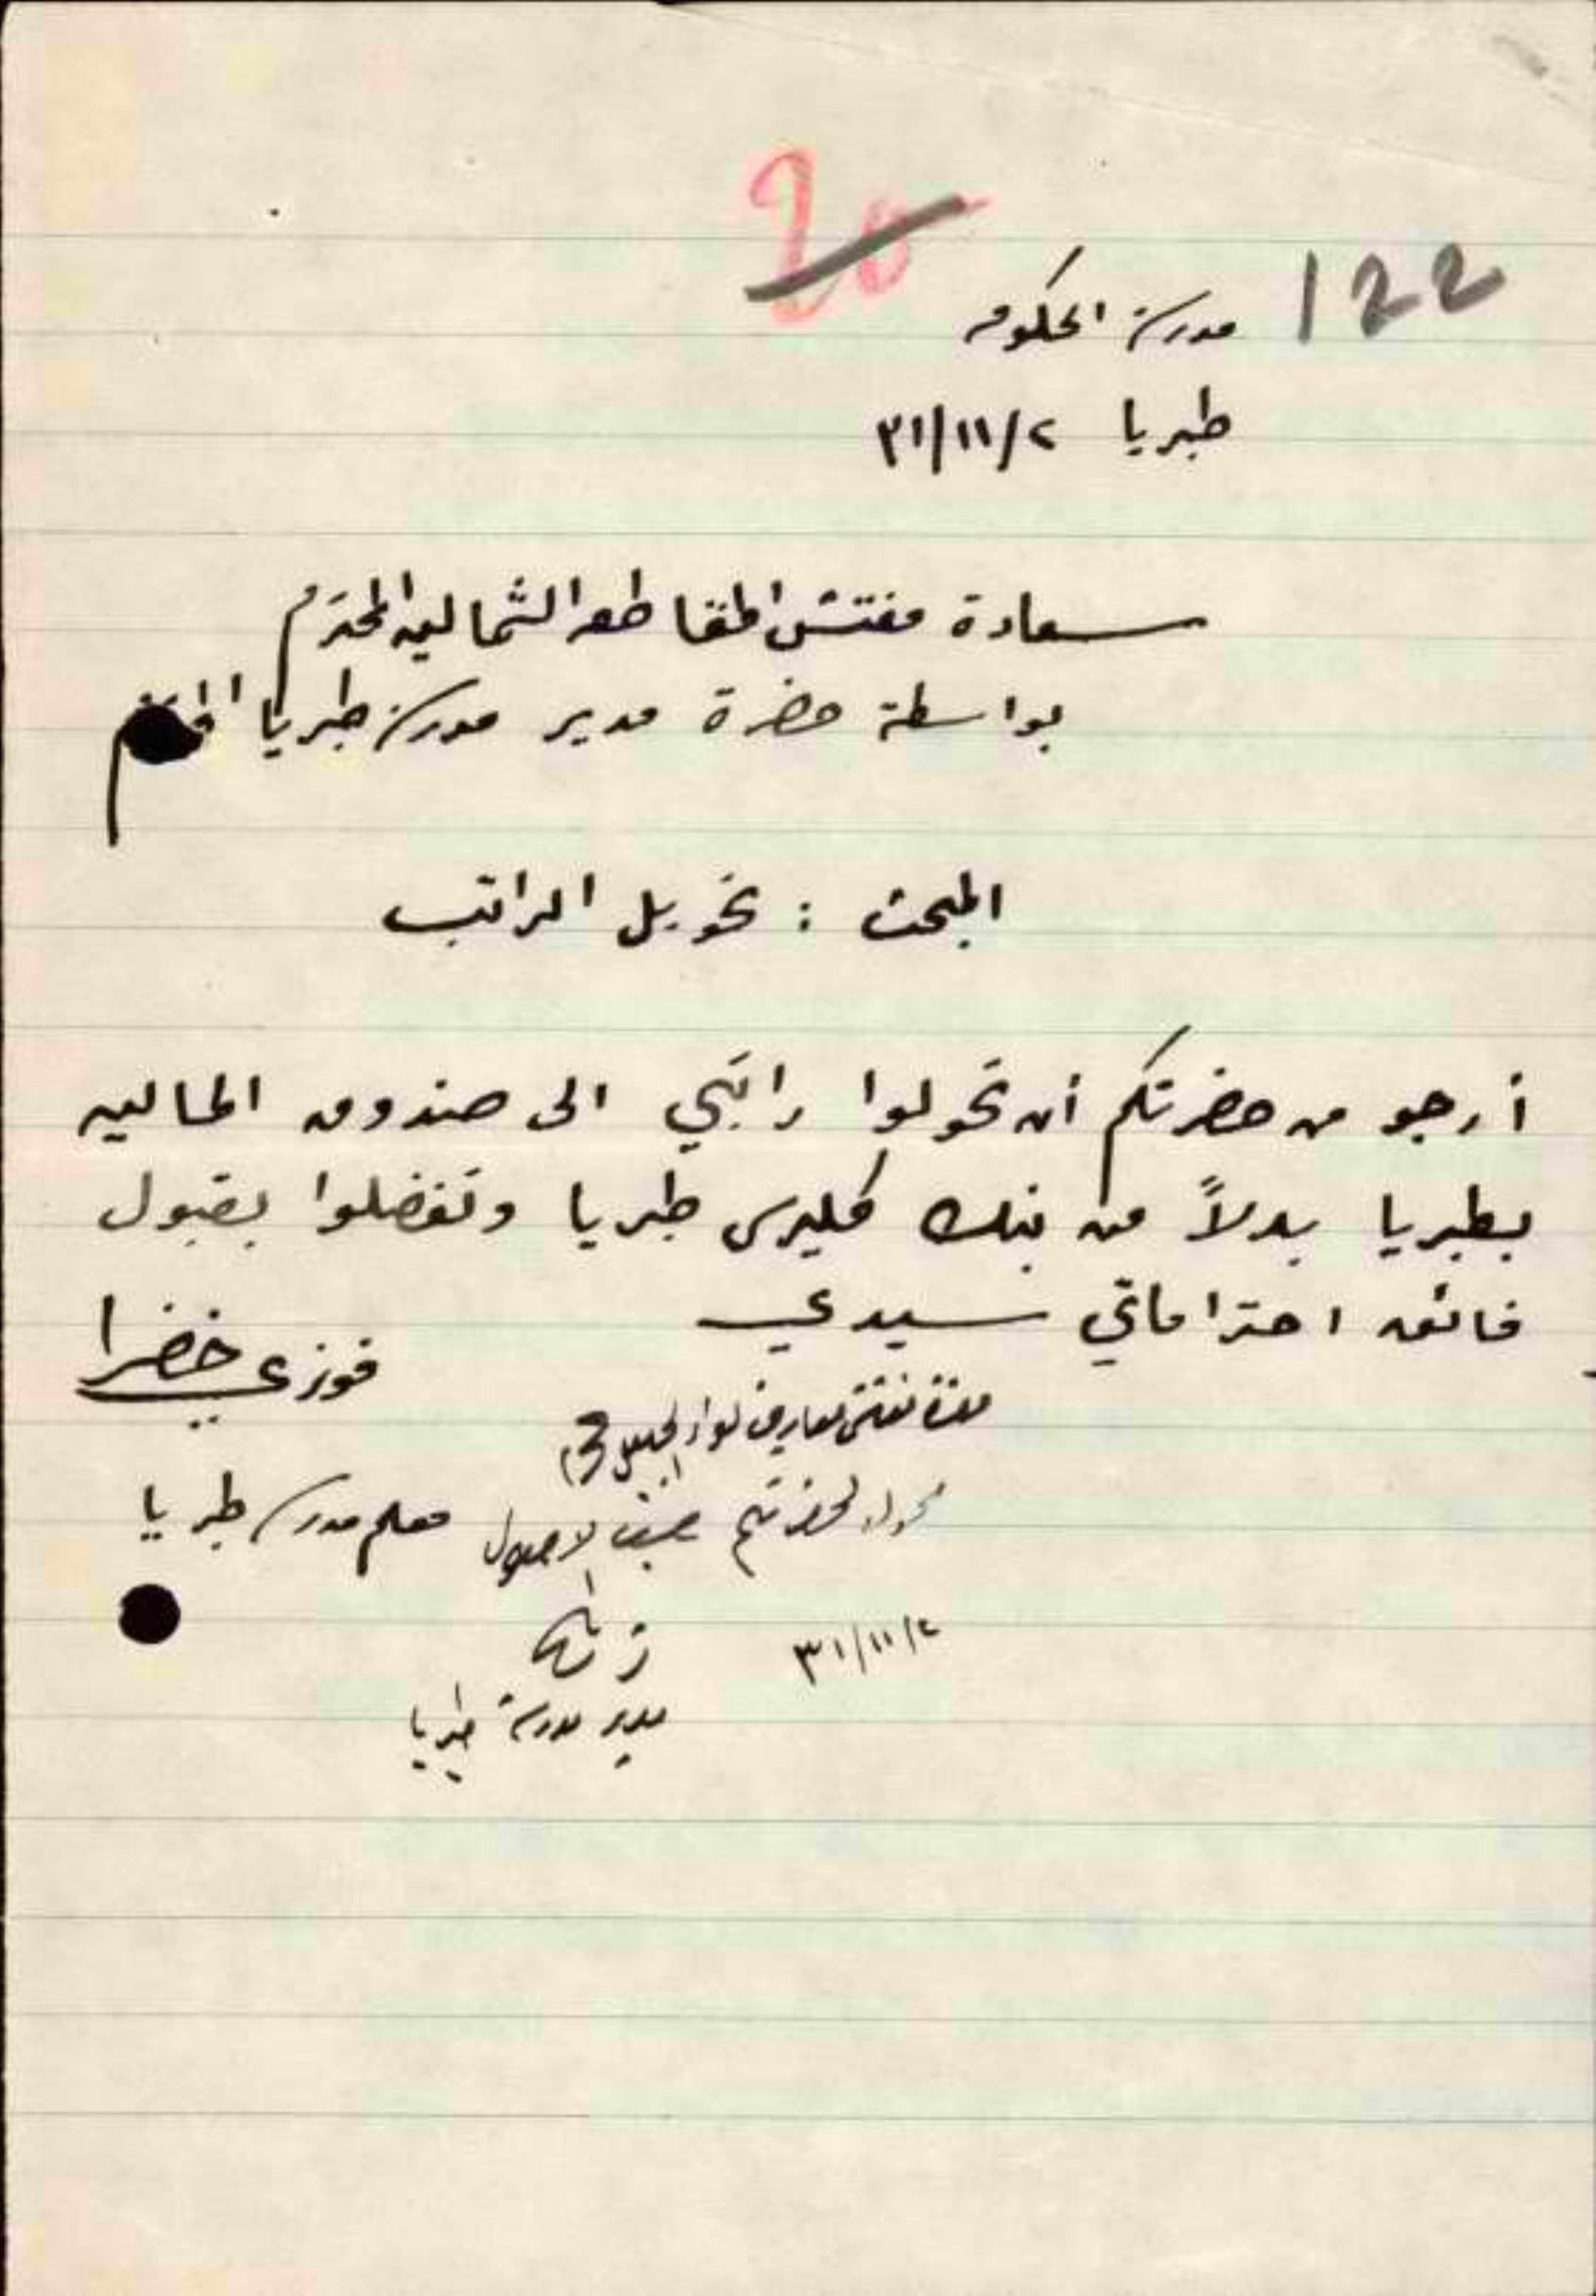 20
122
مدرسة الحكومه
طبريا ٣١/١١/٢
سعادة مفتش المقاطعه الشماليه المحترم
بواسطة حضرة مدير مدرسة طبريا المحترم
المبحث : تحويل الراتب
أرجو من حضرتكم أن تحولوا راتبي الى صندوق الماليه
بطبريا بدلاً من بنك كليرس طبريا وتفضلوا بقبول
فائق احتراماتي سيدي
فوزي خضرا
معلم مدرسة طبريا
حضرة مفتش معارف لواء الجليل
محول لحضرتكم حسب الاصول
٣١/١١/٢
مدير مدرسة طبريا